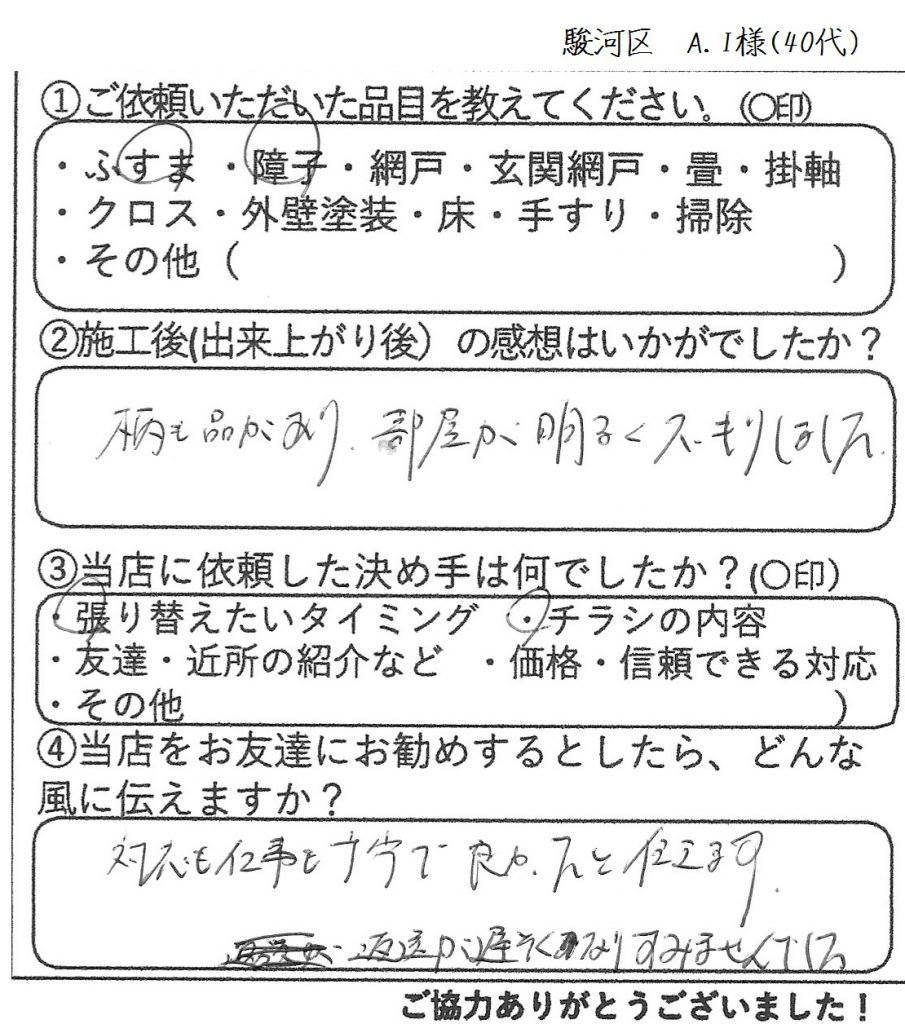 駿河区 A.I様(40代)
①ご依頼いただいた品目を教えてください。(〇印)
・ふすま ・障子・網戸・玄関網戸・畳・掛軸
・クロス・外壁塗装・床・手すり・掃除
・その他 ( )
②施工後(出来上がり後)の感想はいかがでしたか?
柄も品があり、部屋が明るくスッキリしました。
③当店に依頼した決め手は何でしたか?(〇印)
・張り替えたいタイミング ・チラシの内容
・友達・近所の紹介など ・価格・信頼できる対応
・その他 )
④当店をお友達にお勧めするとしたら、どんな
風に伝えますか?
対応も仕事も丁寧で良かったと伝えます。
返送が遅くなりすみませんでした
ご協力ありがとうございました!